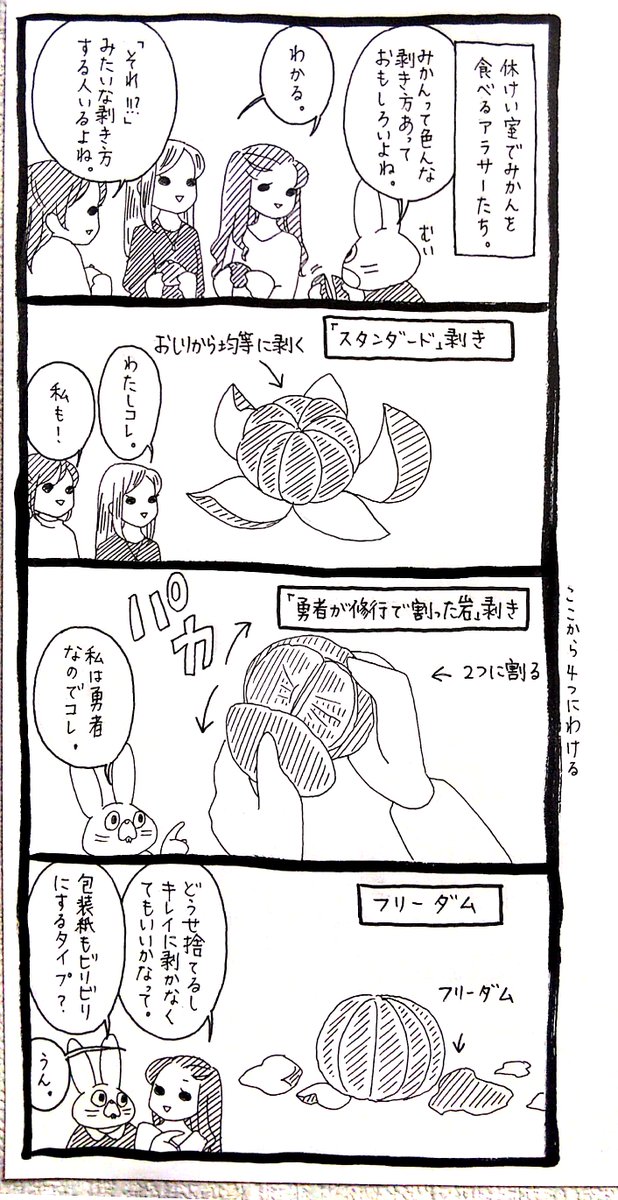 休けい室でみかんを
食べるアラサーたち。
みかんって色んな
剥き方あって
おもしろいよね。
むい
わかる。
「それ!!?」
みたいな剥き方
する人いるよね。
「スタンダード」剥き
おしりから均等に剥く
わたしコレ。
私も!
「勇者が修行で割った岩」剥き
パカ
← 2つに割る
ここから4つにわける
私は勇者
なのでコレ。
フリーダム
フリーダム
どうせ捨てるし
キレイに剥かなく
てもいいかなって。
包装紙もビリビリ
にするタイプ?
うん。